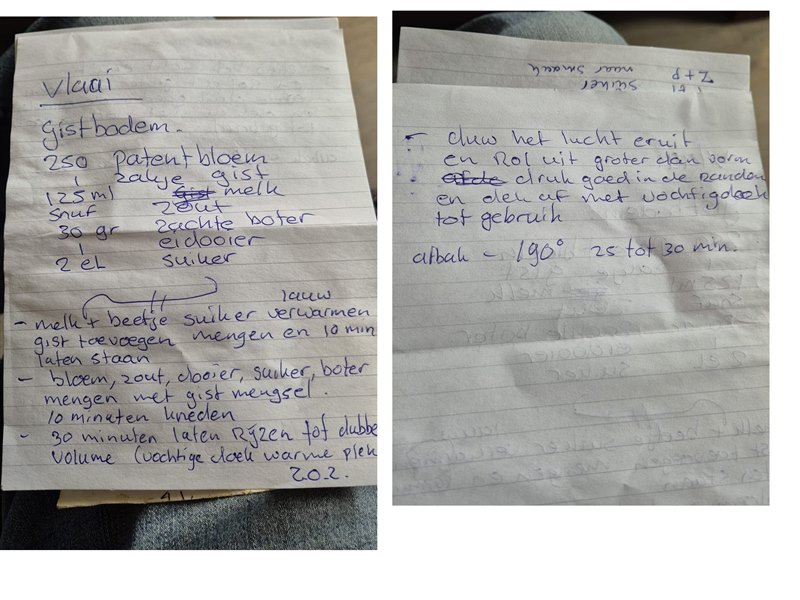 Vlaai
gistbodem.
250 patentbloem
1 zakje gist
125 ml melk
snuf zout
30 gr zachte boter
1 eidooier
2 el suiker
lauw
- melk + beetje suiker verwarmen
gist toevoegen mengen en 10 min
laten staan
- bloem, zout, dooier, suiker, boter
mengen met gist mengsel.
10 minuten kneden
- 30 minuten laten Rijzen tot dubbe
volume (vochtige doek warme plek
Z.O.Z.
Z+P naar smaak
1 el suiker
- duw het lucht eruit
en Rol uit groter dan vorm
druk goed in de randen
en dek af met vochtig doek
tot gebruik
afbak - 190° 25 tot 30 min.